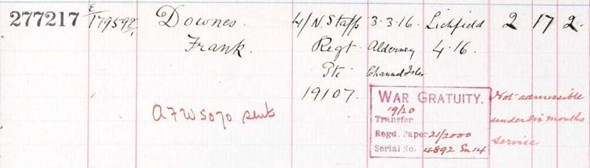 277217 E/179592/1 Downes. 4/N Staffs 3.3.16. Lichfield 2 17 2.
Frank. Regt Alderney 4.16.
Pte Channel Isles
19107.
AFW5070 sent
WAR GRATUITY.
19/20
Transfer
Regd. Paper 21/2000
Serial No. 4892 Sn 14
Not admissible
under six months
service